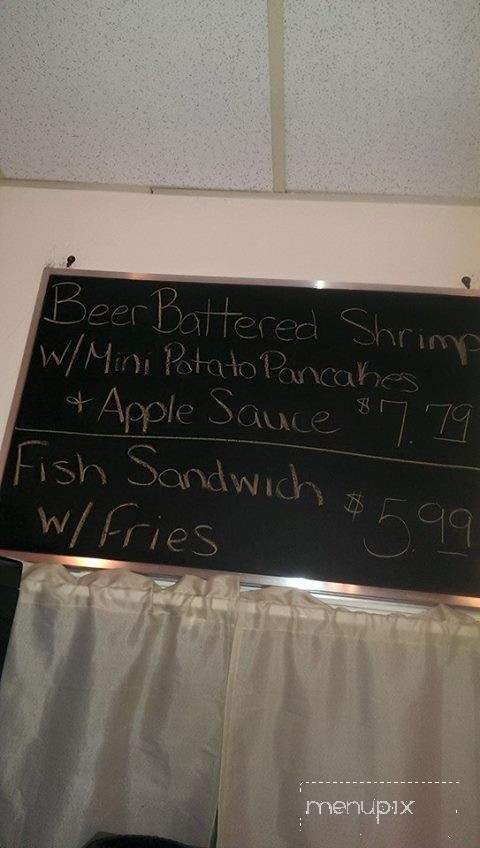 Beer Battered Shrimp
W/Mini Potato Pancakes
+ Apple Sauce $7.79
Fish Sandwich
W/Fries $5.99
menupix